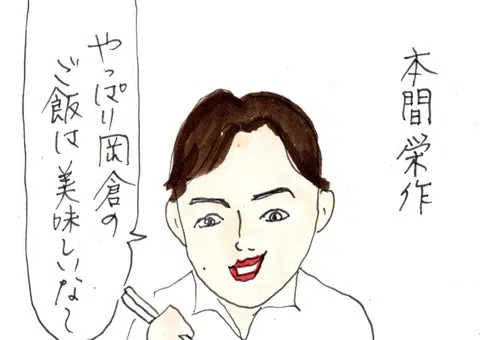 本間栄作
やっぱり岡倉の
ご飯は美味しいな〜